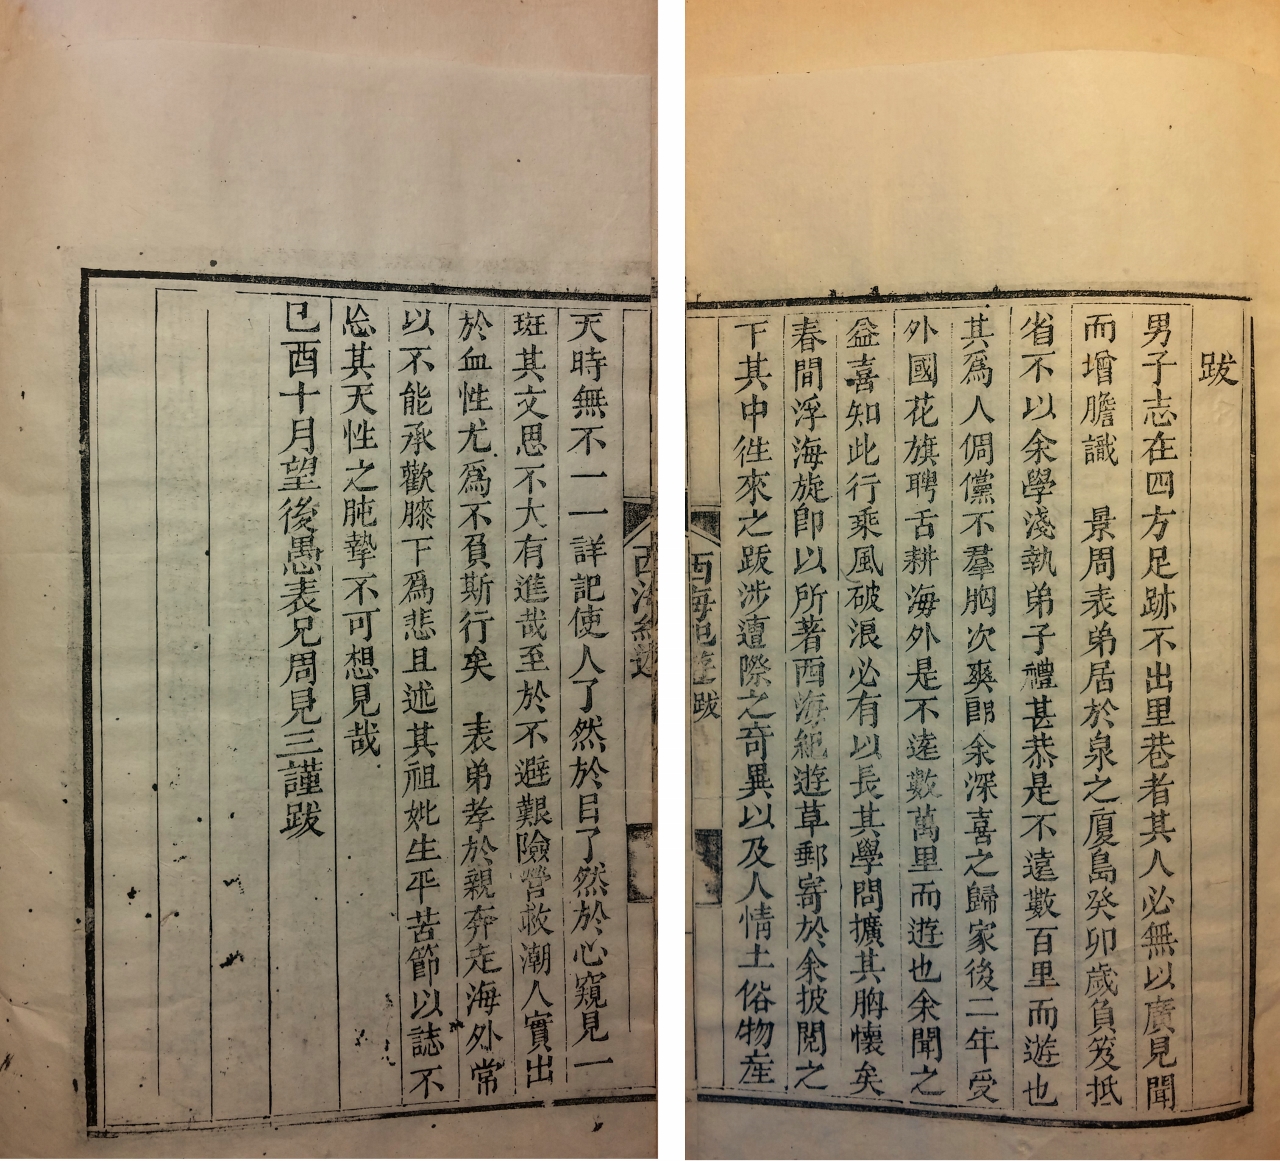 跋
男子志在四方足跡不出里巷者其人必無以廣見聞
而增膽識　景周表弟居於泉之廈島癸卯歲負笈抵
省不以余學淺執弟子禮甚恭是不遠數百里而遊也
其爲人倜儻不羣胸次爽朗余深喜之歸家後二年受
外國花旗聘舌耕海外是不遠數萬里而遊也余聞之
益喜知此行乘風破浪必有以長其學問擴其胸懷矣
春間浮海旋卽以所著西海紀遊草郵寄於余披閱之
下其中徃來之跋涉遭際之奇異以及人情土俗物産
西海紀遊 跋
西海紀遊
天時無不一一詳記使人了然於目了然於心窺見一
斑其文思不大有進哉至於不避艱險營救潮人實出
於血性尤爲不負斯行矣　表弟孝於親奔走海外常
以不能承歡膝下爲悲且述其祖妣生平苦節以誌不
忘其天性之肫摯不可想見哉
己酉十月望後愚表兄周見三謹跋